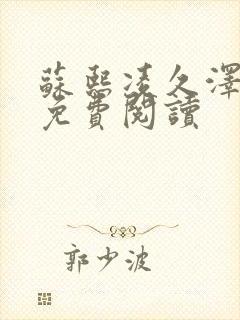 蘇熙凌久澤
免費閱讀
郭少波